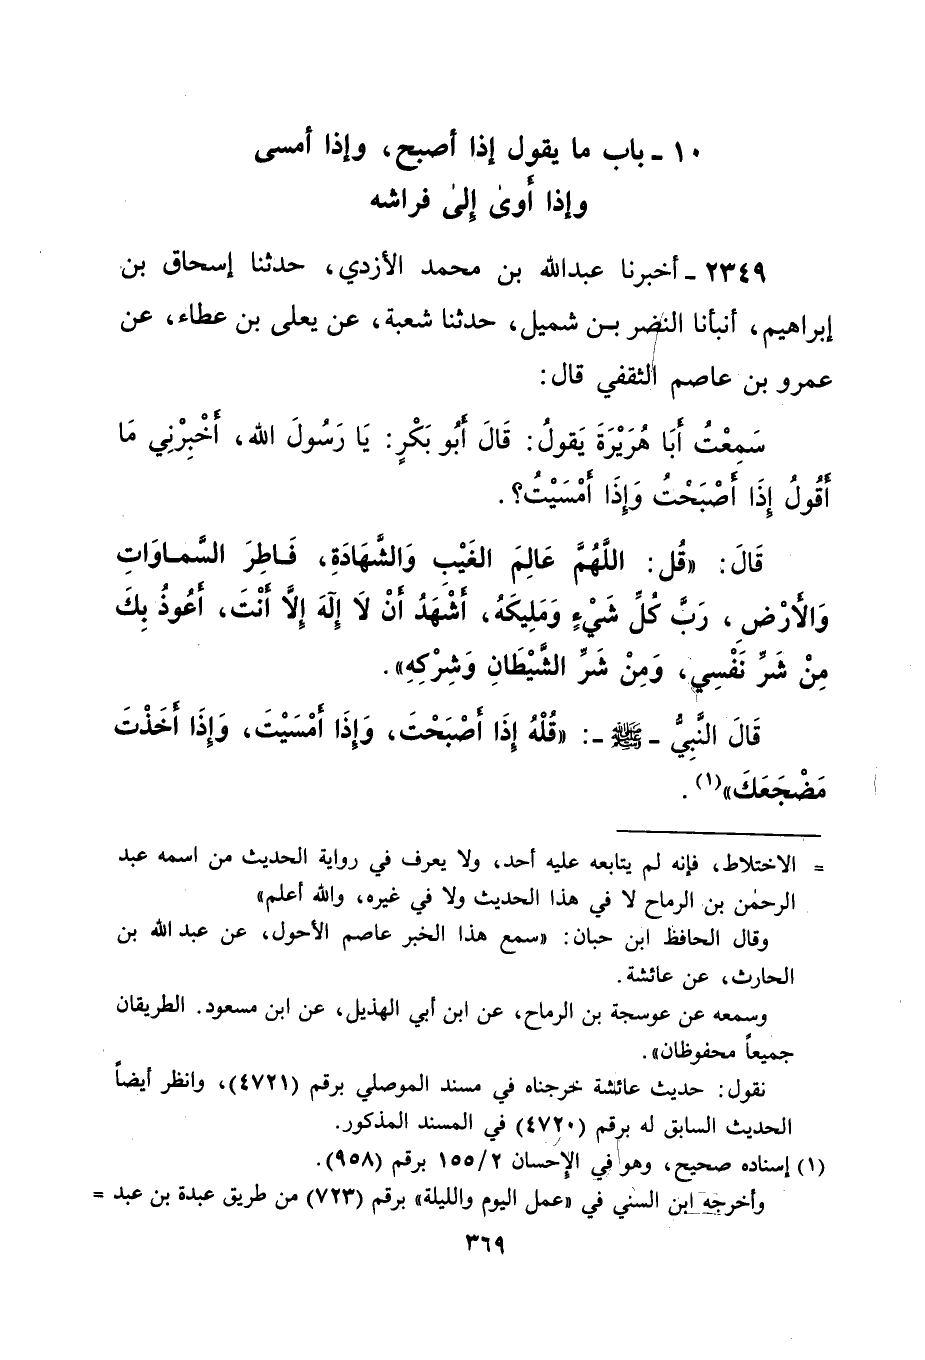 ١٠ - باب ما يقول إذا أصبح، وإذا أمسى
وإذا أوىٰ إلىٰ فراشه
٢٣٤٩ - أخبرنا عبدالله بن محمد الأزدي، حدثنا إسحاق بن
إبراهيم، أنبأنا النضر بن شميل، حدثنا شعبة، عن يعلى بن عطاء، عن
عمرو بن عاصم الثقفي قال:
سَمِعْتُ أَبَا هُرَيْرَةَ يَقولُ: قَالَ أَبُو بَكْرٍ: يَا رَسُولَ الله، أَخْبِرْنِي مَا
أَقُولُ إِذَا أَصْبَحْتُ وَإِذَا أَمْسَيْتُ؟.
قَالَ: «قُل: اللَّهُمَّ عَالِمَ الغَيْبِ وَالشَّهَادَةِ، فَاطِرَ السَّماوَاتِ
وَالأَرْضِ، رَبَّ كُلِّ شَيْءٍ وَمَلِيكَهُ، أَشْهَدُ أَنْ لَا إِلَهَ إِلَّا أَنْتَ، أَعُوذُ بِكَ
مِنْ شَرِّ نَفْسِي، وَمِنْ شَرِّ الشَّيْطَانِ وَشِرْكِهِ».
قَالَ النَّبِيُّ - ﷺ -: «قُلْهُ إِذَا أَصْبَحْتَ، وَإِذَا أَمْسَيْتَ، وَإِذَا أَخَذْتَ
مَضْجَعَكَ»(١).
= الاختلاط، فإنه لم يتابعه عليه أحد، ولا يعرف في رواية الحديث من اسمه عبد
الرحمٰن بن الرماح لا في هذا الحديث ولا في غيره، والله أعلم»
وقال الحافظ ابن حبان: «سمع هذا الخبر عاصم الأحول، عن عبد الله بن
الحارث، عن عائشة.
وسمعه عن عوسجة بن الرماح، عن ابن أبي الهذيل، عن ابن مسعود. الطريقان
جميعاً محفوظان».
نقول: حديث عائشة خرجناه في مسند الموصلي برقم (٤٧٢١)، وانظر أيضاً
الحديث السابق له برقم (٤٧٢٠) في المسند المذكور.
(١) إسناده صحيح، وهو في الإحسان ١٥٥/٢ برقم (٩٥٨).
وأخرجه ابن السني في «عمل اليوم والليلة» برقم (٧٢٣) من طريق عبدة بن عبد =
٣٦٩